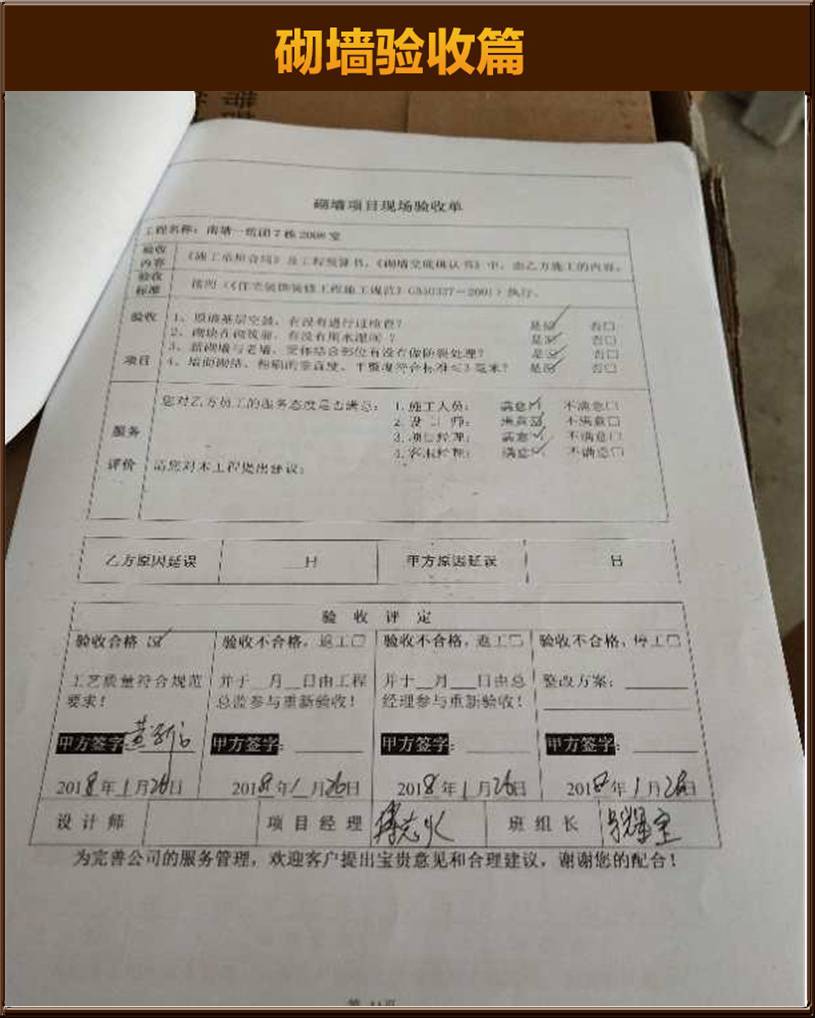 砌墙验收篇
砌墙项目现场验收单
工程名称：南塘一组团7栋2006室
验收内容 《施工承包合同》及工程预算书，《砌墙交底确认书》中，由乙方施工的内容。
验收标准 按照《《住宅装饰装修工程施工规范》GB50327－2001》执行。
验收项目
1、原墙基层空鼓，有没有进行过检查？ 是☑ 否□
2、砌块在砌筑前，有没有用水湿润？ 是☑ 否□
3、新砌墙与老墙、梁体结合部位有没有做防裂处理？ 是☑ 否□
4、墙面砌结、粉刷的垂直度、平整度符合标准≤3毫米？ 是☑ 否□
服务评价
您对乙方员工的服务态度是否满意： 1.施工人员： 满意☑ 不满意□
2.设计师： 满意☑ 不满意□
3.项目经理： 满意☑ 不满意□
4.客服经理： 满意☑ 不满意□
请您对本工程提出建议：
乙方原因延误 日 甲方原因延误 日
验收评定
验收合格☑ 验收不合格，返工□ 验收不合格，返工□ 验收不合格、停工□
工艺质量符合规范要求！ 并于__月__日由工程总监参与重新验收！ 并于__月__日由总经理参与重新验收！ 整改方案：
甲方签字 甲方签字： 甲方签字： 甲方签字：
2018年1月26日 2018年1月26日 2018年1月26日 2018年1月26日
设计师 项目经理 班组长
为完善公司的服务管理，欢迎客户提出宝贵意见和合理建议，谢谢您的配合！